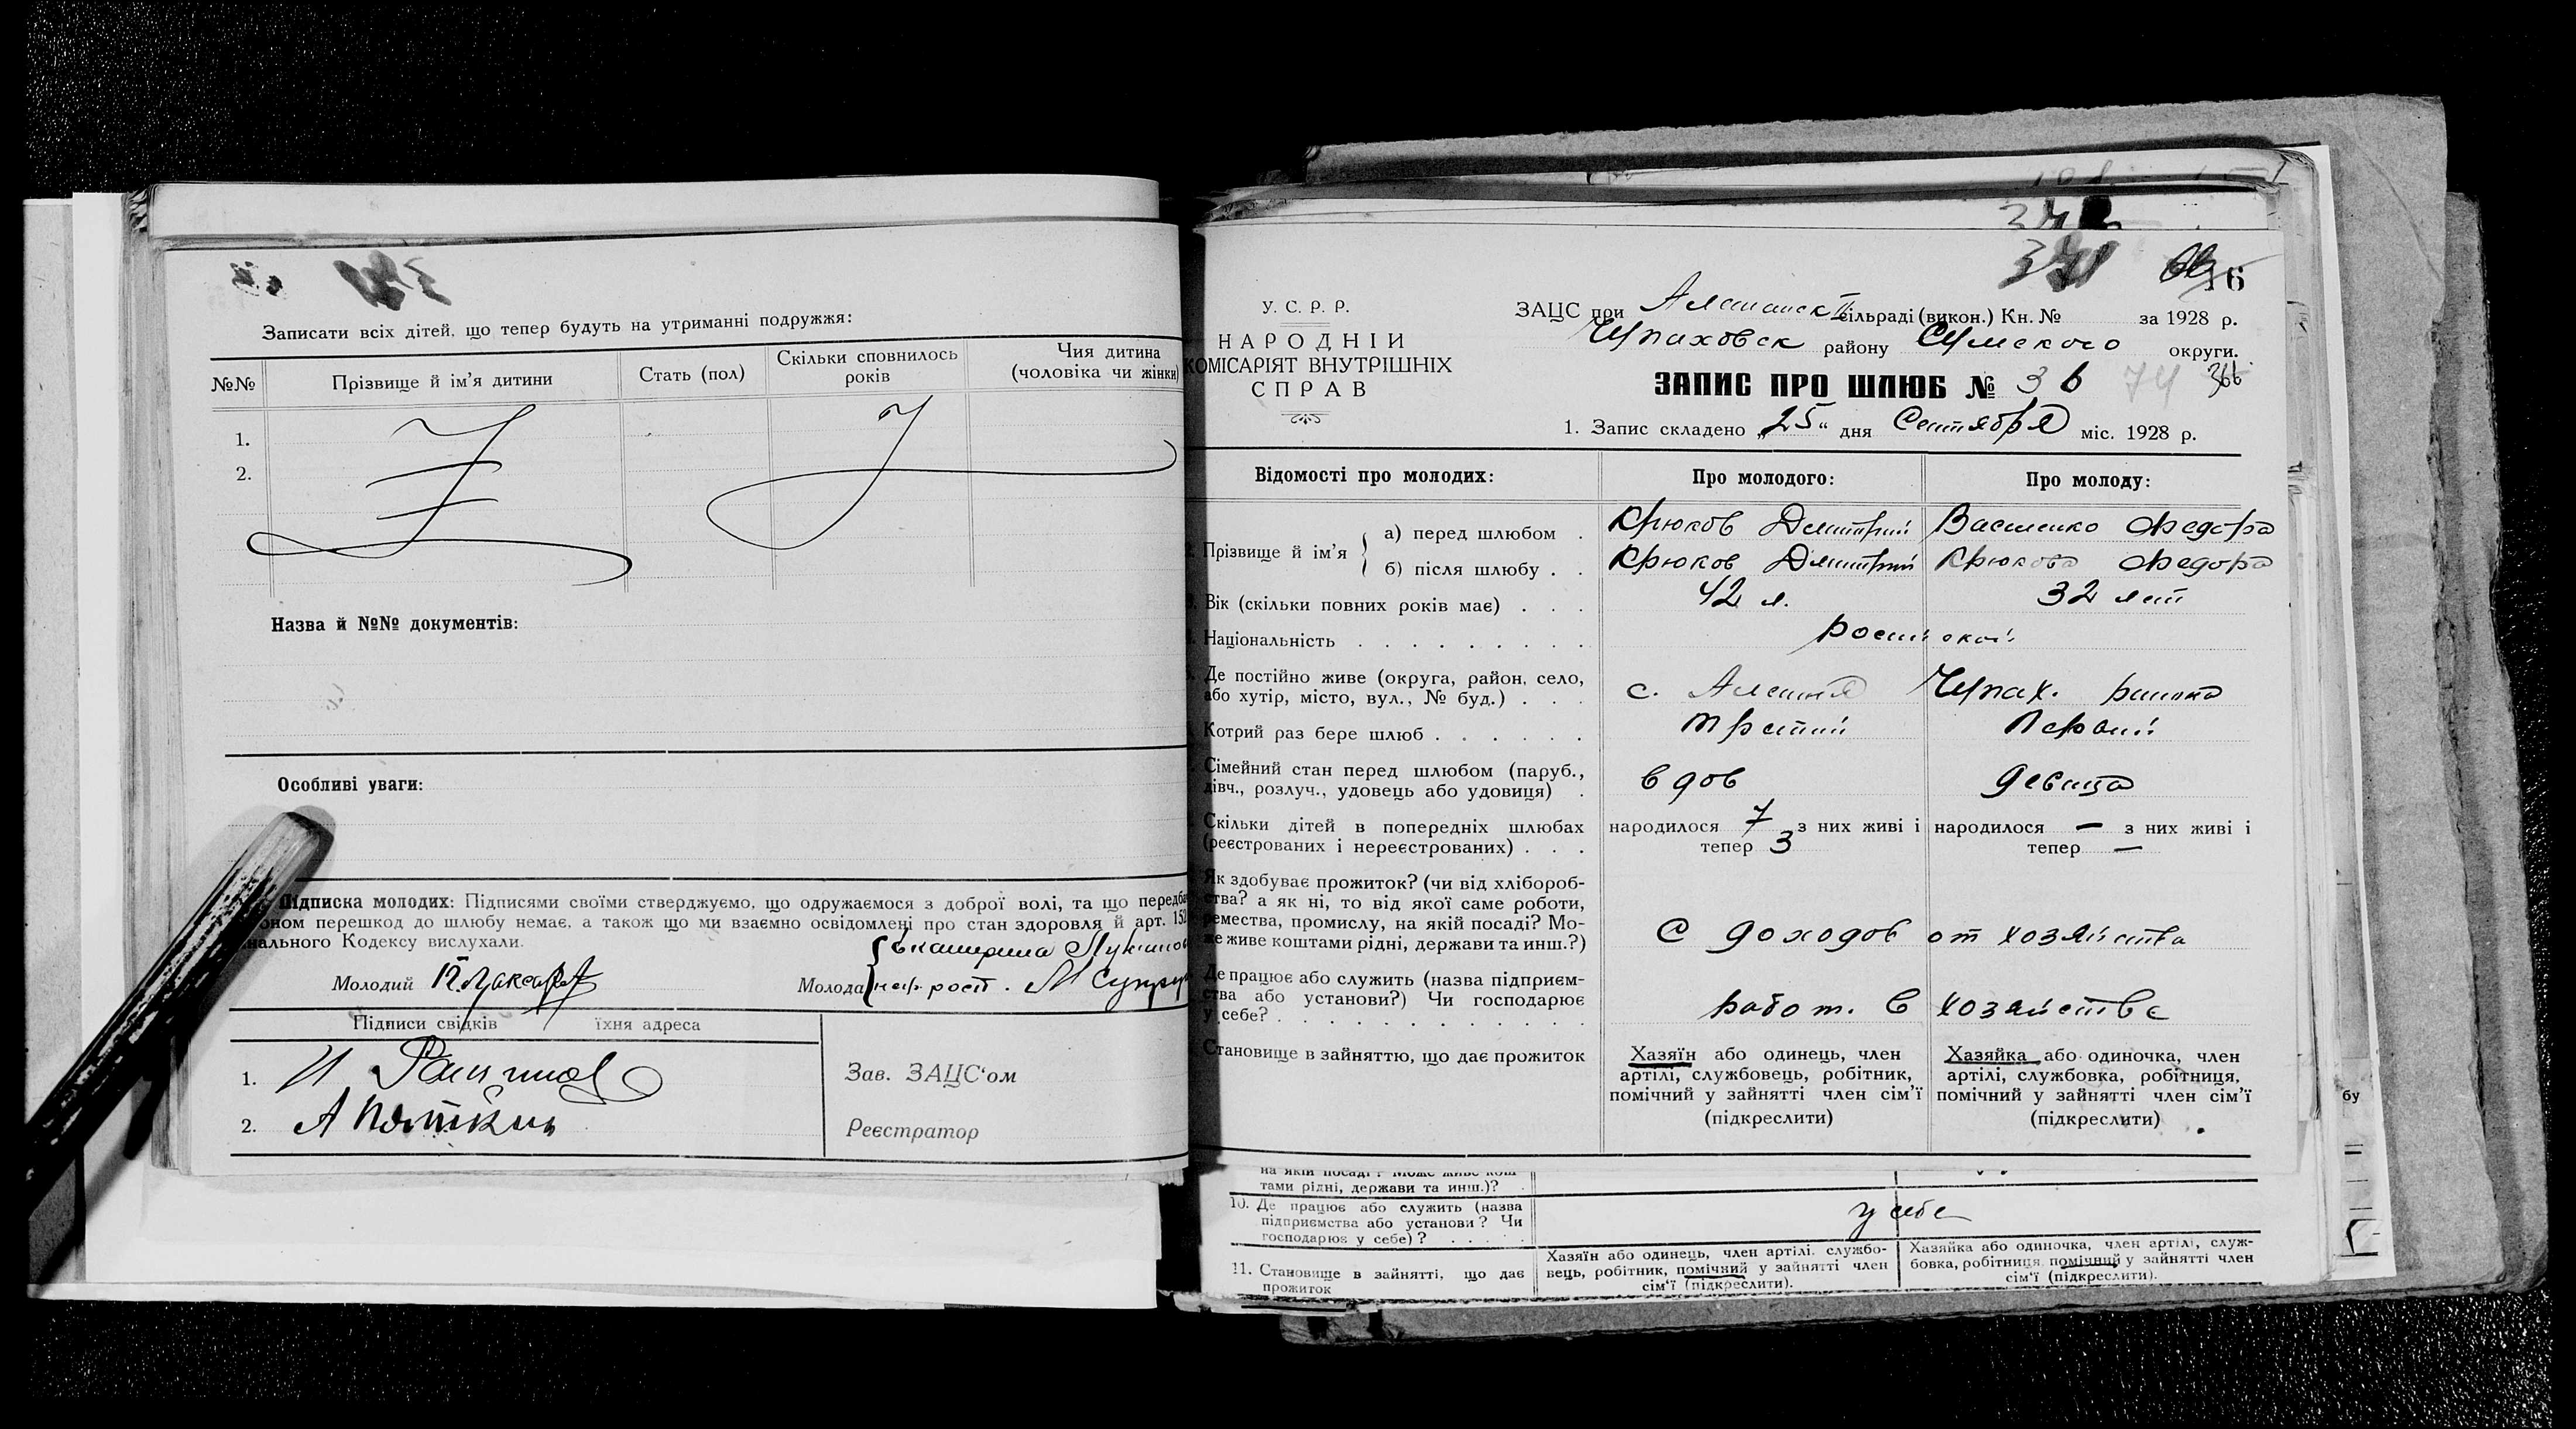 Записати всіх дітей, що тепер будуть на утриманні подружжя:
№№ Прізвище й ім'я дитини Стать (пол) Скільки сповнилось років Чия дитина (чоловіка чи жінки)
1.
2.
Назва й №№ документів:
Особливі уваги:
Підписка молодих: Підписями своїми стверджуємо, що одружаємося з доброї волі, та що передба
оном перешкод до шлюбу немає, а також що ми взаємно освідомлені про стан здоровля й арт. 152
нального Кодексу вислухали.
Молодий
Молода Екатерина
неգр
Підписи свідків їхня адреса
1.
2. А
Зав. ЗАЦС'ом
Реєстратор
371
16
У. С. Р. Р.
НАРОДНІЙ
КОМІСАРІЯТ ВНУТРІШНІХ
СПРАВ
ЗАЦС при сільраді (викон.) Кн. № за 1928 р.
району Сумского округи.
ЗАПИС ПРО ШЛЮБ № 36 74 366
1. Запис складено „25“ дня Сентября міс. 1928 р.
Відомості про молодих: Про молодого: Про молоду:
Прізвище й ім'я
а) перед шлюбом . Крюков Дмитрий Василенко Федора
б) після шлюбу . . Крюков Дмитрий Крюкова Федора
Вік (скільки повних років має) . . . 42 л. 32 лет
Національність . . . . . . . . .
Де постійно живе (округа, район, село,
або хутір, місто, вул., № буд.) . . . с. Алешня Чупах. района
Котрий раз бере шлюб . . . . . . третий Первый
Сімейний стан перед шлюбом (паруб.,
дівч., розлуч., удовець або удовиця) . вдов девица
Скільки дітей в попередніх шлюбах
(реєстрованих і нереєстрованих) . . .
народилося 7 з них живі і
тепер 3
народилося — з них живі і
тепер —
Як здобуває прожиток? (чи від хлібороб-
ства? а як ні, то від якої саме роботи,
ремества, промислу, на якій посаді? Мо-
же живе коштами рідні, держави та инш.?)
С доходов от хозяйства
Де працює або служить (назва підприєм-
ства або установи?) Чи господарює
у себе? . . . . . . . . . . . .
работ. в хозяйстве
Становище в зайняттю, що дає прожиток
Хазяїн або одинець, член
артілі, службовець, робітник,
помічний у зайнятті член сім'ї
(підкреслити)
Хазяйка або одиночка, член
артілі, службовка, робітниця,
помічний у зайнятті член сім'ї
(підкреслити)
тами рідні, держави та инш.)?
10. Де працює або служить (назва
підприємства або установи? Чи
господарює у себе)? . . . . .
у себе
11. Становище в зайнятті, що дає
прожиток
Хазяїн або одинець, член артілі, службо-
вець, робітник, помічний у зайнятті член
сім'ї (підкреслити).
Хазяйка або одиночка, член артілі, служ-
бовка, робітниця, помічний у зайнятті член
сім'ї (підкреслити).
бу